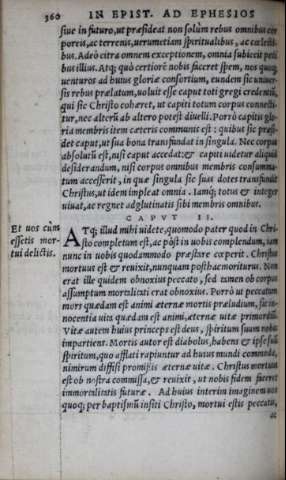 360 IN EPIST. AD EPHESIOS
siue in futuro, ut præsideat non solùm rebus omnibus cor
poreis, ac terrenis, uerumetiam spiritualibus, ac cœlesti
bus. Adeò citra omnem exceptionem, omnia subiecit pedi
bus illius. Atq; quò certiorē nobis faceret spem, nos quoq;
uenturos ad huius gloriæ consortium, eundem sic uniuer
sis rebus prælatum, uoluit esse caput toti gregi credentiū,
qui sic Christo cohæret, ut capiti totum corpus connecti
tur, nec alterū ab altero potest diuelli. Porrò capitis glo
ria membris item cæteris communis est: quibus sic præsi
det caput, ut sua bona transfundat in singula. Nec corpus
absolutū est, nisi caput accedat: & capiti uidetur aliquid
desiderandum, nisi corpus omnibus membris consumma
tum accesserit, in quæ singula sic suas dotes transfundit
Christus, ut idem impleat omnia. Iamq; totus & integer
uiuat, ac regnet adglutinatis sibi membris omnibus.
CAPVT II.
Et uos cùm
essetis mor
tui delictis.
ATq; illud mihi uidete, quomodo pater quod in Chri-
sto completum est, ac pòst in uobis complendum, iam
nunc in uobis quodammodo præstare cœperit. Christus
mortuus est & reuixit, nunquam posthac moriturus. Non
erat ille quidem obnoxius peccato, sed tamen ob corpus
assumptum mortalitati erat obnoxius. Porrò ut peccatum
mors quædam est animi æternæ mortis præludium, sic in-
nocentia uita quædam est animi, æternæ uitæ primordiū.
Vitæ autem huius princeps est deus, spiritum suum nobis
impartiens. Mortis autor est diabolus, habens & ipse suū
spiritum, quo afflati rapiuntur ad huius mundi commoda,
nimirum diffisi promissis æternæ uitæ. Christus mortuus
est ob nostra commissa, & reuixit, ut nobis fidem faceret
immortalitatis futuræ. Ad huius interim imaginem uos
quoq; per baptismū insiti Christo, mortui estis peccatis,
ac